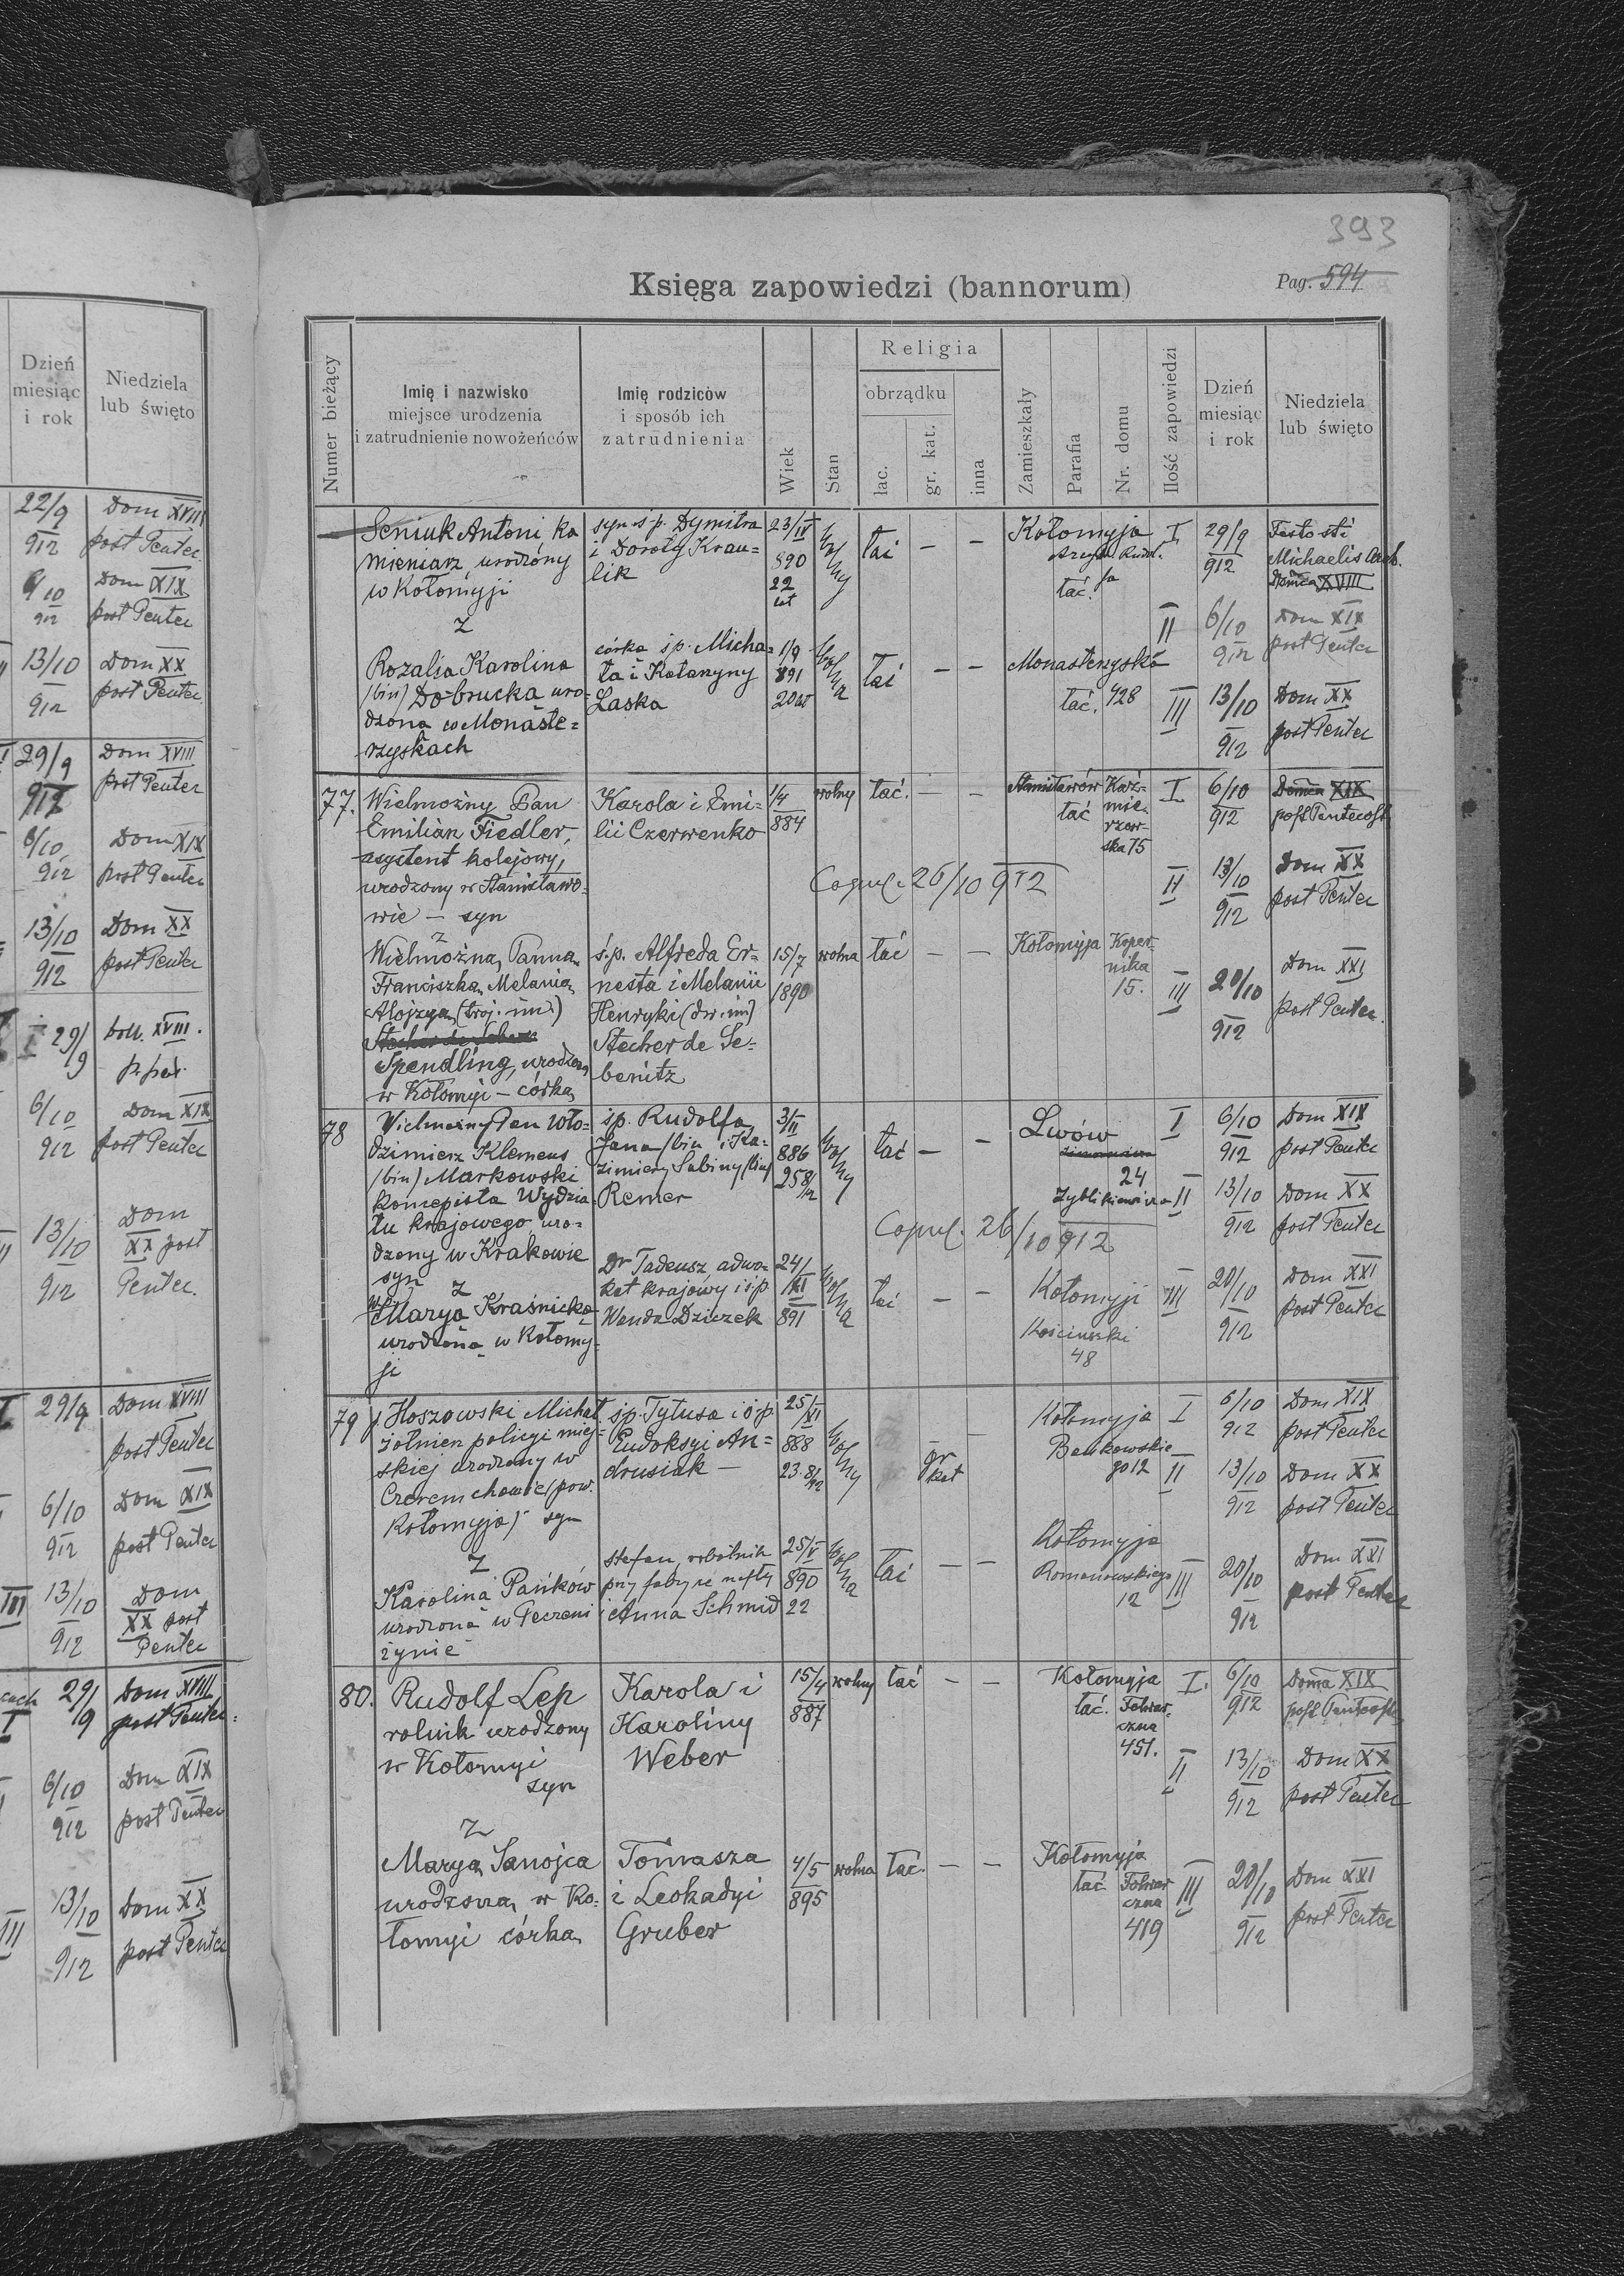 Dzień
miesiąc
i rok
Niedziela
lub święto
22/9
912
Dom XVIII
post Pentec
6/10
912
Dom XIX
post Pentec
13/10
912
Dom XX
post Pentec
29/9
912
Dom XVIII
post Pentec
6/10
912
Dom XIX
post Pentec
13/10
912
Dom XX
post Pentec
I 29/9
XVIII.
6/10
912
Dom XIX
post Pentec
13/10
912
Dom
XX post
Pentec.
29/9
Dom XVIII
post Pentec
6/10
912
Dom XIX
post Pentec
III 13/10
912
Dom
XX post
Pentec
I
29/9
Dom XVIII
post Pentec
6/10
912
Dom XIX
post Pentec
III
13/10
912
Dom XX
post Pentec
393
Księga zapowiedzi (bannorum)
Pag. 594
Numer bieżący
Imię i nazwisko
miejsce urodzenia
i zatrudnienie nowożeńców
Imię rodziców
i sposób ich
zatrudnienia
Wiek
Stan
Religia
obrządku
łac.
gr. kat.
inna
Zamieszkały
Parafia
Nr. domu
Ilość zapowiedzi
Dzień
miesiąc
i rok
Niedziela
lub święto
Seniuk Antoni ka
mieniarz, urodzony
w Kołomyji
z
Rozalia Karolina
(bin) Dobrucka uro-
dzona w Monaste=
rzyskach
syn ś.p. Dymitra
i Doroty Krau=
lik
córka śp. Micha=
ła i Katarzyny
Laska
23/IV
890
22
lat
1/9
891
20 lat
wolny
wolna
łać
— —
łać
— —
Kołomyja
łać.
Monasterzyska
łać. 428
I
29/9
912
Festo sti
Michaelis Arch.
Domca XVIII
II
6/10
912
Dom XIX
post Pentec
III
13/10
912
Dom XX
post Pentec
77.
Wielmożny Pan
Emilian Fiedler,
asystent kolejowy,
urodzony w Stanisławo-
wie — syn
z
Wielmożna Panna
Franciszka Melania
Alojzya (troj. im.)
Stecher de Sebenitz
Spendling, urodzona
w Kołomyi — córka
Karola i Emi-
lii Czerwenko
ś.p. Alfreda Er-
nesta i Melanii
Henryki (dw. im)
Stecher de Se-
benitz
1/4
884
15/7
1890
wolny
wolna
łać. — —
łać — —
Copul. 26/10 912
Stanisławów
łać
Kaź-
mie-
rzow-
ska 75
Kołomyja
Koper-
nika
15.
I
6/10
912
Domca XIX
post Pentecost
II
13/10
912
Dom XX
post Pentec
III
20/10
912
Dom XXI
post Pentec.
78
Wielmożny Pan Wło-
dzimierz Klemens
(bin) Markowski
koncepista Wydzia-
łu krajowego, uro-
dzony w Krakowie
syn z
Marya Kraśnicka
urodzona w Kołomy-
ji
śp. Rudolfa
Jana (bin i Ka-
zimiery Sabiny (bin)
Remer
Dr Tadeusz, adwo-
kat krajowy i śp
Wanda Dziczek
3/II
886
25 8/12
24/
XI
891
wolny
wolna
łać — —
łać — —
Copul. 26/10 912
Lwów
24
Zyblikiewicza
Kołomyji
Kościuszki
48
I
6/10
912
Dom XIX
post Pentec
II
13/10
912
Dom XX
post Pentec
III
20/10
912
Dom XXI
post Pentec
79
Hoszowski Michał
żołnierz policyi miej-
skiej urodzony w
Czeremchowie (pow.
Kołomyja) syn
z
Karolina Pańków
urodzona w Peczeni
żynie
śp. Tytusa i śp.
Eudoksyi An=
drusiak —
Stefan, robotnik
przy fabryce nafty
i Anna Schmid
25/
XI
888
23 8/12
25/V
890
22
wolny
wolna
gr
kat
łać — —
Kołomyja
Bankowskie
go 12
Kołomyja
Romanowskiego
12
I
6/10
912
Dom XIX
post Pentec
II
13/10
912
Dom XX
post Pentec
III
20/10
912
Dom XXI
post Pentec
80.
Rudolf Lep
rolnik urodzony
w Kołomyi
syn
z
Marya Sanojca
urodzona w Ko-
łomyi córka
Karola i
Karoliny
Weber
Tomasza
i Leokadyi
Gruber
15/4
887
4/5
895
wolny
wolna
łać — —
łać. — —
Kołomyja
łać. Folwar-
czna
451.
Kołomyja
łać Folwar
czna
419
I.
6/10
912
Domca XIX
post Pentecost
II
13/10
912
Dom XX
post Pentec
III
20/10
912
Dom XXI
post Pentec